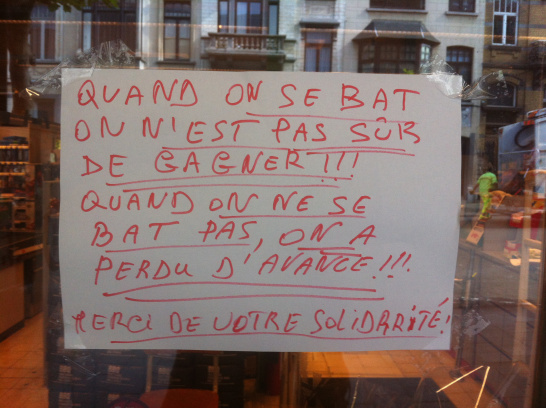 QUAND ON SE BAT
ON N'EST PAS SÛR
DE GAGNER!!!
QUAND ON NE SE
BAT PAS, ON A
PERDU D'AVANCE!!!
MERCI DE VOTRE SOLIDARITÉ!